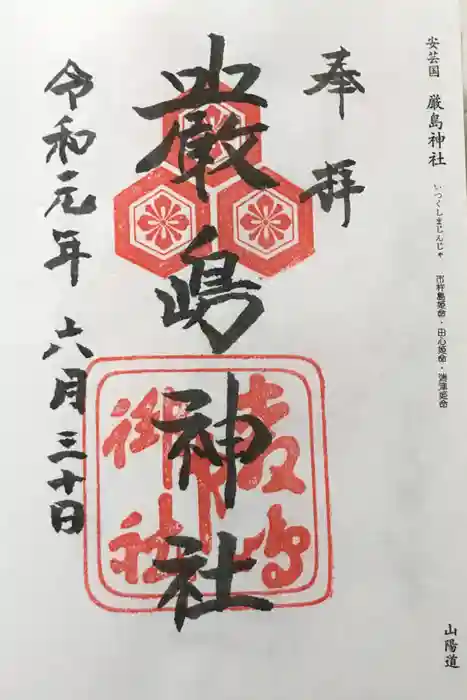 安芸国 厳島神社 いつくしまじんじゃ 市杵島姫命・田心姫命・湍津姫命
山陽道
奉拝
厳嶋神社
令和元年六月三十日
厳嶋
御社